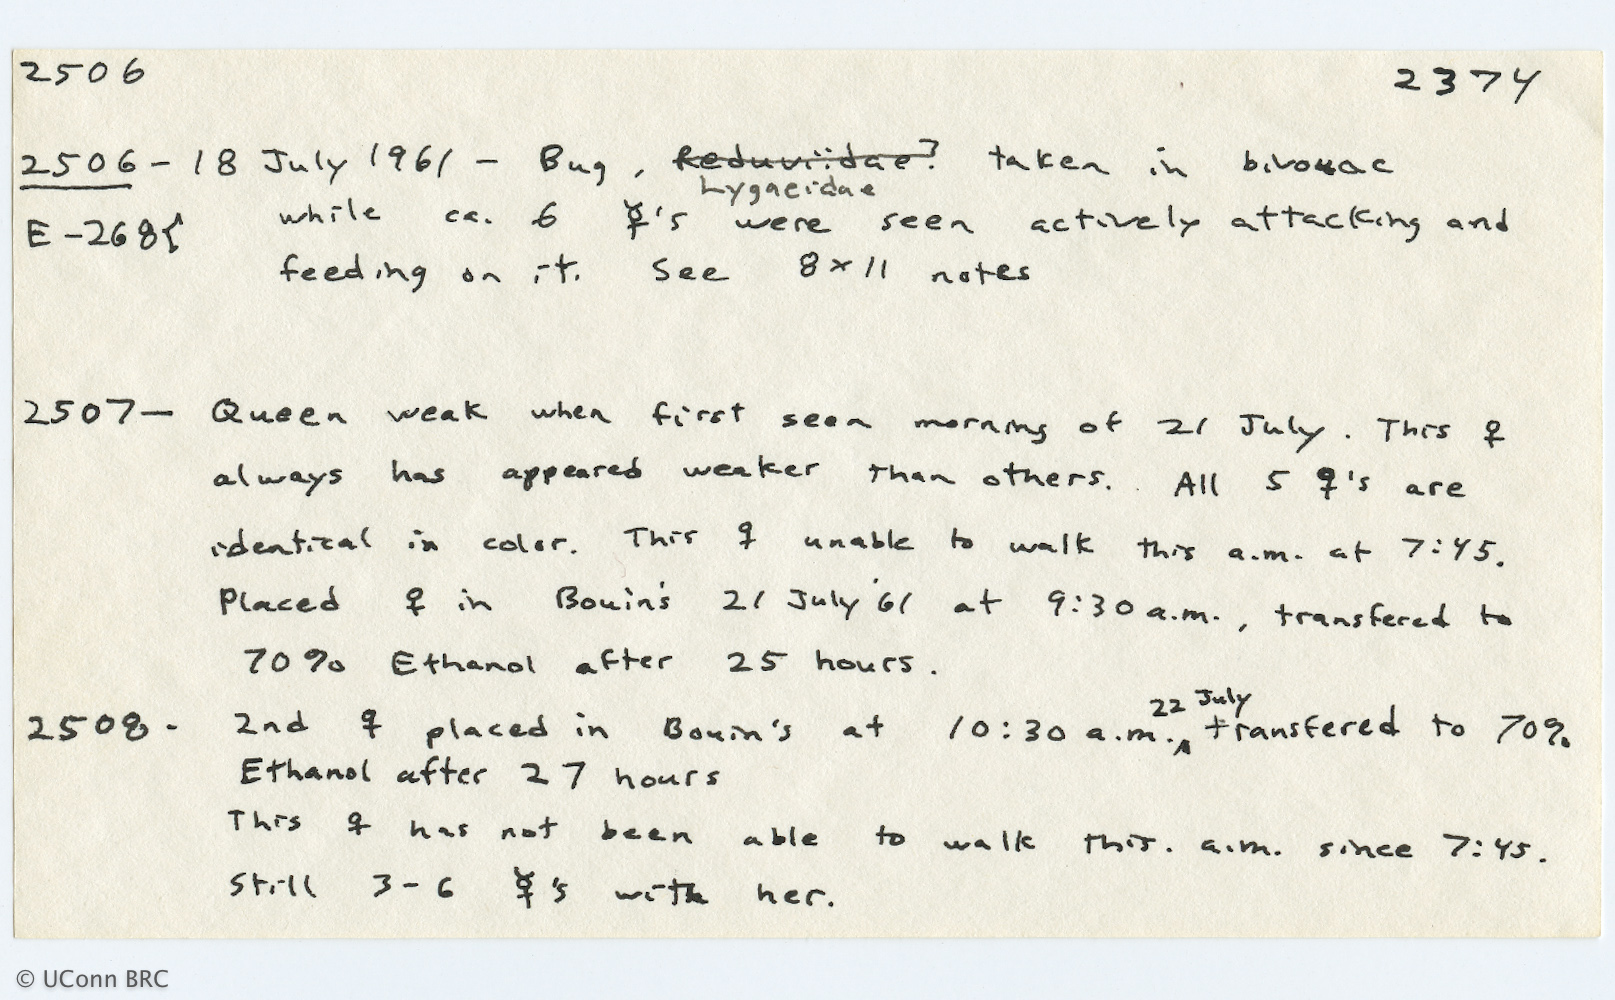 2506 2374
2506 - 18 July 1961 - Bug, Reduviidae? taken in bivouac
Lygaeidae
E-268{ while ca. 6 ☿'s were seen actively attacking and
feeding on it. See 8x11 notes
2507 - Queen weak when first seen morning of 21 July. This ♀
always has appeared weaker than others. All 5 ♀'s are
identical in color. This ♀ unable to walk this a.m. at 7:45.
Placed ♀ in Bouin's 21 July '61 at 9:30 a.m., transfered to
70% Ethanol after 25 hours.
22 July
2508 - 2nd ♀ placed in Bouin's at 10:30 a.m.‸ transfered to 70%
Ethanol after 27 hours
This ♀ has not been able to walk this. a.m. since 7:45.
Still 3-6 ☿'s with her.
© UConn BRC